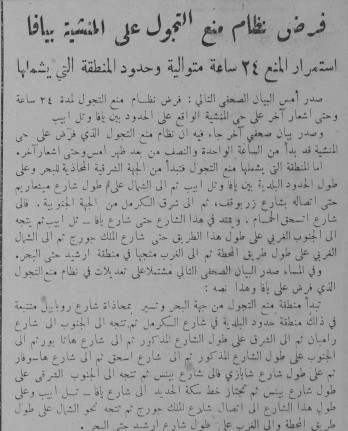 فرض نظام منع التجول على المنشية بيافا
استمرار المنع ٢٤ ساعة متوالية وحدود المنطقة التي يشملها
صدر أمس البيان الصحفي التالي : فرض نظام منع التجول لمدة ٢٤ ساعة
وحتى اشعار آخر على حي المنشية الواقع على الحدود بين يافا وتل ابيب
وصدر بيان صحفي آخر جاء فيه ان نظام منع التجول الذي فرض على حي
المنشية قد بدأ من الساعة الواحدة والنصف من بعد ظهر امس وحتى اشعار آخر .
اما المنطقة التي يشملها منع التجول فتبدأ من الجهة الشرقية المحاذية للبحر وعلى
طول الحدود البلدية بين يافا وتل ابيب ثم الى الشمال على طول شارع
حتى اتصاله بشارع ، ثم الى شرق الكرمل من الجهة الجنوبية . فالى
شارع اسحق ، ويمتد في هذا الشارع حتى شارع يافا – تل ابيب ثم يتجه
الى الجنوب الغربي على طول هذا الطريق حتى شارع الملك جورج ثم الى الشمال
الغربي على طول طريق المحطة ثم الى الغرب متجها في منطقة ارشيد حتى البحر .
وفي المساء صدر البيان الصحفي التالي مشتملا على تعديلات في نظام منع التجول
الذي فرض على يافا وهذا نصه :
تبدأ منطقة منع التجول من جهة البحر وتسير بمحاذاة شارع متتبعة
في ذلك منطقة حدود البلدية في شارع الكرمل ثم تتجه الى الجنوب الى شارع
رامبان ثم الى الشرق على طول الشارع المذكور ثم الى شارع ثم الى
الجنوب على طول الشارع المذكور ثم الى شارع اسحق ثم الى شارع
ثم على طول شارع شابازي فالى شارع بينس ثم تتجه الى الجنوب الشرقي على
طول شارع بينس ثم تجتاز خط سكة الحديد الى شارع يافا – تل ابيب وعلى
طول هذا الشارع الى اتصال شارع الملك جورج ثم تتجه نحو الشمال على طول
طريق المحطة والى الغرب على طول شارع ارشيد حتى البحر .